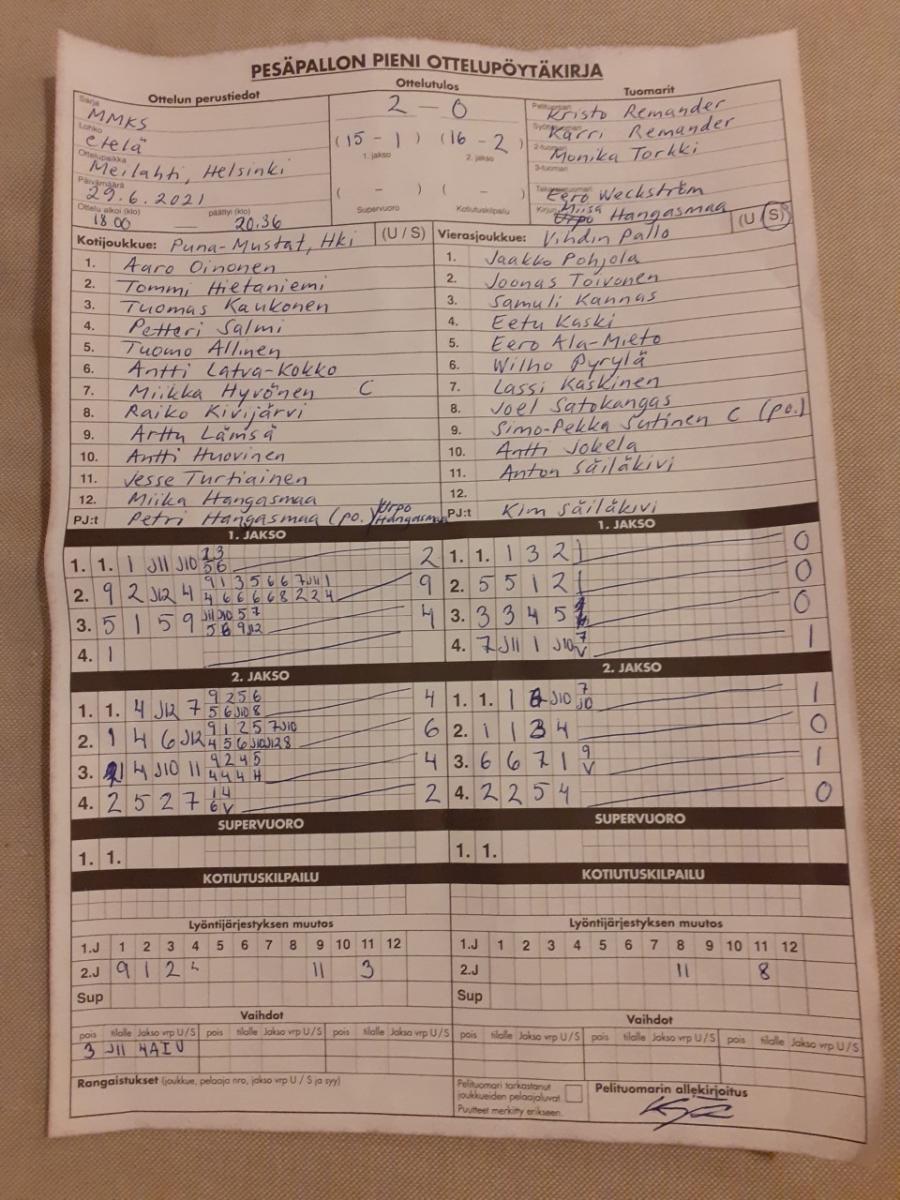 PESÄPALLON PIENI OTTELUPÖYTÄKIRJA
Ottelun perustiedot
Ottelutulos
Tuomarit
Sarja
MMKS
Lohko
etelä
Ottelupaikka
Meilahti, Helsinki
Päivämäärä
29.6.2021
Ottelu alkoi (klo) päättyi (klo)
18.00 — 20.36
2 – 0
(15 – 1) (16 – 2)
1. jakso 2. jakso
( – ) ( – )
Supervuoro Kotiutuskilpailu
Pelituomari
Kristo Remander
Karri Remander
2-tuomari
Monika Torkki
3-tuomari
Eero Weckström
Miisa Hangasmaa
Kotijoukkue: Puna-Mustat, Hki (U / S)
1. Aaro Oinonen
2. Tommi Hietaniemi
3. Tuomas Kaukonen
4. Petteri Salmi
5. Tuomo Allinen
6. Antti Latva-Kokko
7. Miikka Hyvönen C
8. Raiko Kivijärvi
9. Arttu Lämsä
10. Antti Huovinen
11. Jesse Turtiainen
12. Miika Hangasmaa
PJ:t Petri Hangasmaa (po.) Urpo Hangasmaa
Vierasjoukkue: Vihdin Pallo (U / S)
1. Jaakko Pohjola
2. Joonas Toivonen
3. Samuli Kannas
4. Eetu Kaski
5. Eero Ala-Mieto
6. Wilho Pyrylä
7. Lassi Kaskinen
8. Joel Satokangas
9. Simo-Pekka Sutinen C (po.)
10. Antti Jokela
11. Anton Säiläkivi
12.
PJ:t Kim Säiläkivi
1. JAKSO
1. 1. 1 J11 J10 56 2
2. 9 2 J12 4 9 1 3 5 6 6 7 J11 1 4 6 6 6 6 8 2 2 4 9
3. 5 1 5 9 J11 J10 5 7 4
4. 1
1. JAKSO
1. 1. 1 3 2 1 0
2. 5 5 1 2 1 0
3. 3 3 4 5 0
4. 7 J11 1 J10 7 V 1
2. JAKSO
1. 1. 4 J12 7 9 2 5 6 5 6 J10 8 4
2. 1 4 6 J12 9 1 2 5 7 J10 4 5 6 J10 J12 8 6
3. 4 J10 11 9 2 4 5 4 4 4 4 4
4. 2 5 2 7 1 4 6 V 2
2. JAKSO
1. 1. 1 J10 7 J0 1
2. 1 1 3 4 0
3. 6 6 7 1 9 V 1
4. 2 2 5 4 0
SUPERVUORO
1. 1.
SUPERVUORO
1. 1.
KOTIUTUSKILPAILU
KOTIUTUSKILPAILU
Lyöntijärjestyksen muutos
1.J 1 2 3 4 5 6 7 8 9 10 11 12
2.J 9 1 2 4 11 3
Sup
Lyöntijärjestyksen muutos
1.J 1 2 3 4 5 6 7 8 9 10 11 12
2.J 11 8
Sup
Vaihdot
pois tilalle Jakso vrp U / S pois tilalle Jakso vrp U / S pois tilalle Jakso vrp U / S
3 J11
Vaihdot
pois tilalle Jakso vrp U / S pois tilalle Jakso vrp U / S pois tilalle Jakso vrp U / S
Rangaistukset (joukkue, pelaaja nro, jakso vrp U / S ja syy)
Pelituomari tarkastanut
joukkueiden pelaajaluvat.
Puutteet merkitty erikseen.
Pelituomarin allekirjoitus